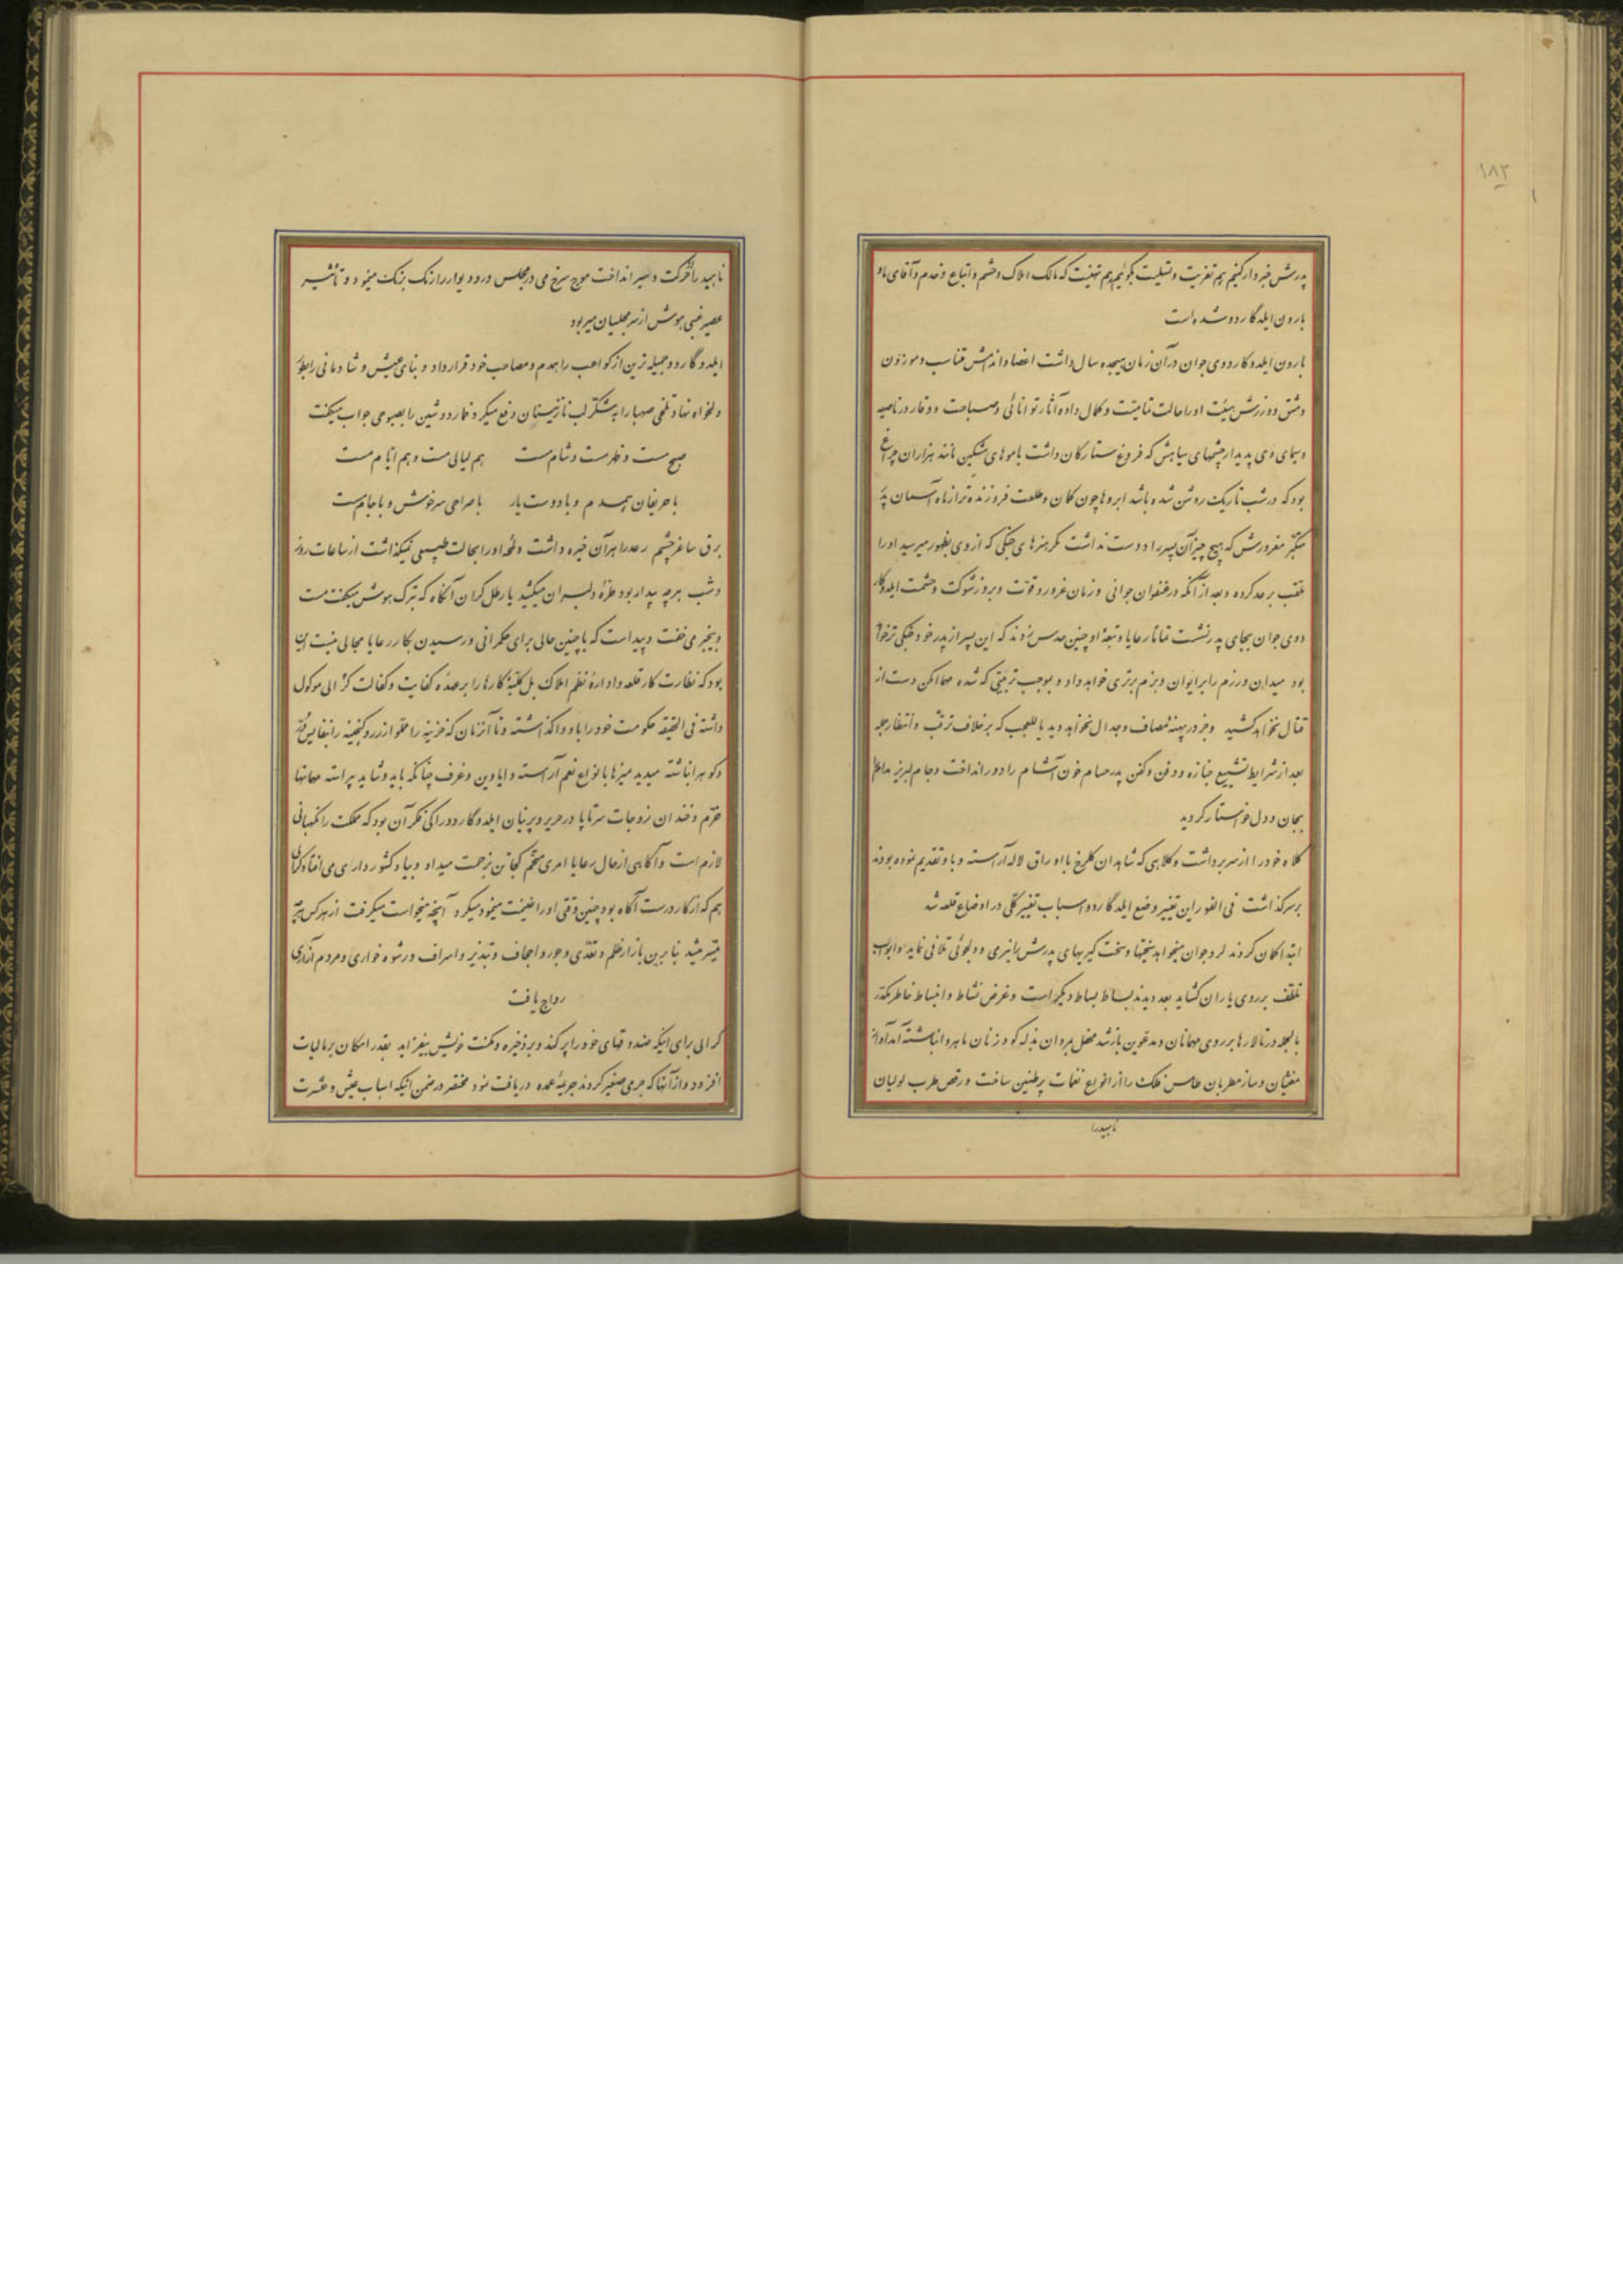 ۱۸۳
پدرش خبردار کنیم هم تعزیت و تسلیت بگوئیم هم تهنیت که مالک املاک و حشم و اتباع و خدم و آقای ما
بارون ایلدگاردو شده است
بارون ایلدوکاردوی جوان در آن زمان هیجده سال داشت اعضا و اندامش متناسب و موزون
مشق و ورزش هیئت او را حالت تمامیت و کمال داده آثار توانائی و صباحت و وقار در ناصیه
و سیمای وی پدیدار چشمهای سیاهش که فروغ ستارکان داشت با موهای مشکین مانند هزاران چراغ
بود که در شب تاریک روشن شده باشد ابروها چون کمان و طلعت فروزنده تر از ماه آسمان پدر
متکبر مغرورش که هیچ چیز آن پسر را دوست نداشت مکر هنرهای جنگی که از وی بظهور میرسید او را
ملقب برعد کرده و بعد از آنکه در عنفوان جوانی و زمان غرور و قوت و بروز شوکت و حشمت ایلدوکار
دوی جوان بجای پدر نشست تماما رعایا و تبعۀ او چنین حدس زدند که این پسر از پدر خود جنکی تر خواهد
بود میدان و رزم را بر ایوان و بزم برتری خواهد داد و بموجب تربیتی که شده مهما امکن دست از
قتال نخواهد کشید و جز در پهنه مصاف و جدال نخواهد دید یا للعجب که بر خلاف ترقب و انتظار جمله
بعد از شرایط تشییع جنازه و دفن و کفن پدر حسام خون آشام را دور انداخت و جام لبریز مدام
بجان و دل خواستار کردید
کلاه خود را از سر برداشت و کلاهی که شاهدان گلرخ با اوراق لاله آراسته و باو تقدیم نموده بودند
بر سر گذاشت فی الفور این تغییر وضع ایلدگاردو اسباب تغییر کلی در اوضاع قلعه شد
ابتدا گمان کردند لرد جوان میخواهد سختیها و سخت گیریهای پدرش را بنرمی و دلجوئی تلافی نماید و ابواب
تلطف بر روی یاران کشاید بعد دیدند بساط بساط دیگر است و غرض نشاط و انبساط خاطر مکدر
بالجمله در تالارها بر روی مهمانان و مدعوین باز شد محفل بمردان بذله کو و زنان ماهرو انباشته آمد آواز
مغنیان و ساز مطربان طاس فلک را از انواع نغمات پر طنین ساخت و رقص طرب لولیان
ناهید را
ناهید را از حرکت و سیر انداخت موج سرخ می در مجلس در و دیوار را رنگ برنگ مینمود و تأثیر
عصیر عنبی هوش از سر مجلسیان میربود
ایلدوگاردو جمیله ترین از کواعب را همدم و مصاحب خود قرار داد و بنای عیش و شادمانی را بطور
دلخواه نهاد تلخی صهبا را به شکر لب نازنینان دفع میکرد و خمار دوشین را بصبوحی جواب میکفت
صبح مست و ظهر مست و شام مست هم لیالی مست و هم ایام مست
با حریفان همدم و با دوست یار با صراحی سرخوش و با جام مست
برق ساغر چشم رعد را هر آن خیره داشت و لمحه او را بحالت طبیعی نمیگذاشت از ساعات روز
و شب هر چه بیدار بود طره دلبران میکشید یا رطل گران آنگاه که ترک هوش میگفت مست
و بیخبر می خفت و پیدا است که با چنین حالی برای حکمرانی و رسیدن بکار رعایا مجالی نیست این
بود که نظارت کار قلعه و اداره نظم املاک بل کلیه کارها را بر عهده کفایت و کفالت کرالی موکول
داشته فی الحقیقه حکومت خود را باو واگذاشته و تا آنزمان که خزینه را مملو از زر و گنجینه را بنفایس قدر
و کوهر انباشته میدید میزها با انواع نعم آراسته و ایادین و غرف چنانکه باید و شاید پیراسته مهمانها
خرم و خندان زوجات سرتاپا در حریر و پرنیان ایلدوگاردو را کی فکر آن بود که مملکت را نگهبانی
لازم است و آگاهی از حال رعایا امری متحتم کجا تن بزحمت میداد و بیاد کشورداری می افتاد کرالی
هم که از کار درست آگاه بود چنین وقتی او را غنیمت میشمرد میکرد آنچه میخواست میگرفت از هر کس هر چه
میسر میشد بنا برین بازار ظلم و تعدی و جور و اجحاف و تبذیر و اسراف و رشوه خواری و مردم آزاری
رواج یافت
کرالی برای اینکه صندوقهای خود را پر کند و بر ذخیره و مکنت خویش بیفزاید بقدر امکان بر مالیات
افزود و از آنها که جرمی صغیر کردند جریمۀ عمده دریافت نمود مختصر در ضمن اینکه اسباب عیش و عشرت